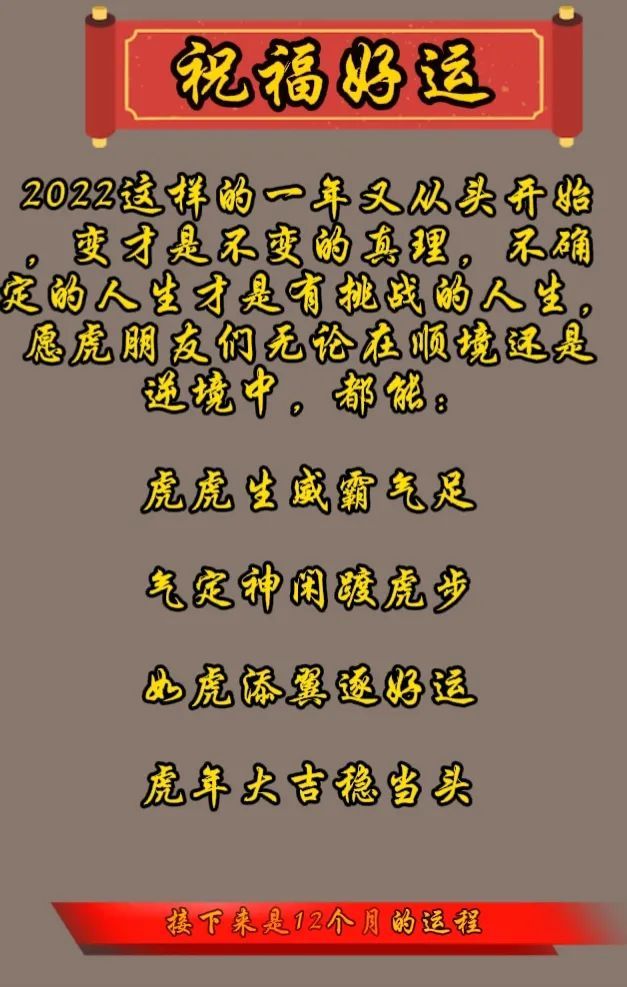 祝福好运
2022这样的一年又从头开始
，变才是不变的真理，不确
定的人生才是有挑战的人生，
愿虎朋友们无论在顺境还是
逆境中，都能：
虎虎生威霸气足
气定神闲踱虎步
如虎添翼逐好运
虎年大吉稳当头
接下来是12个月的运程